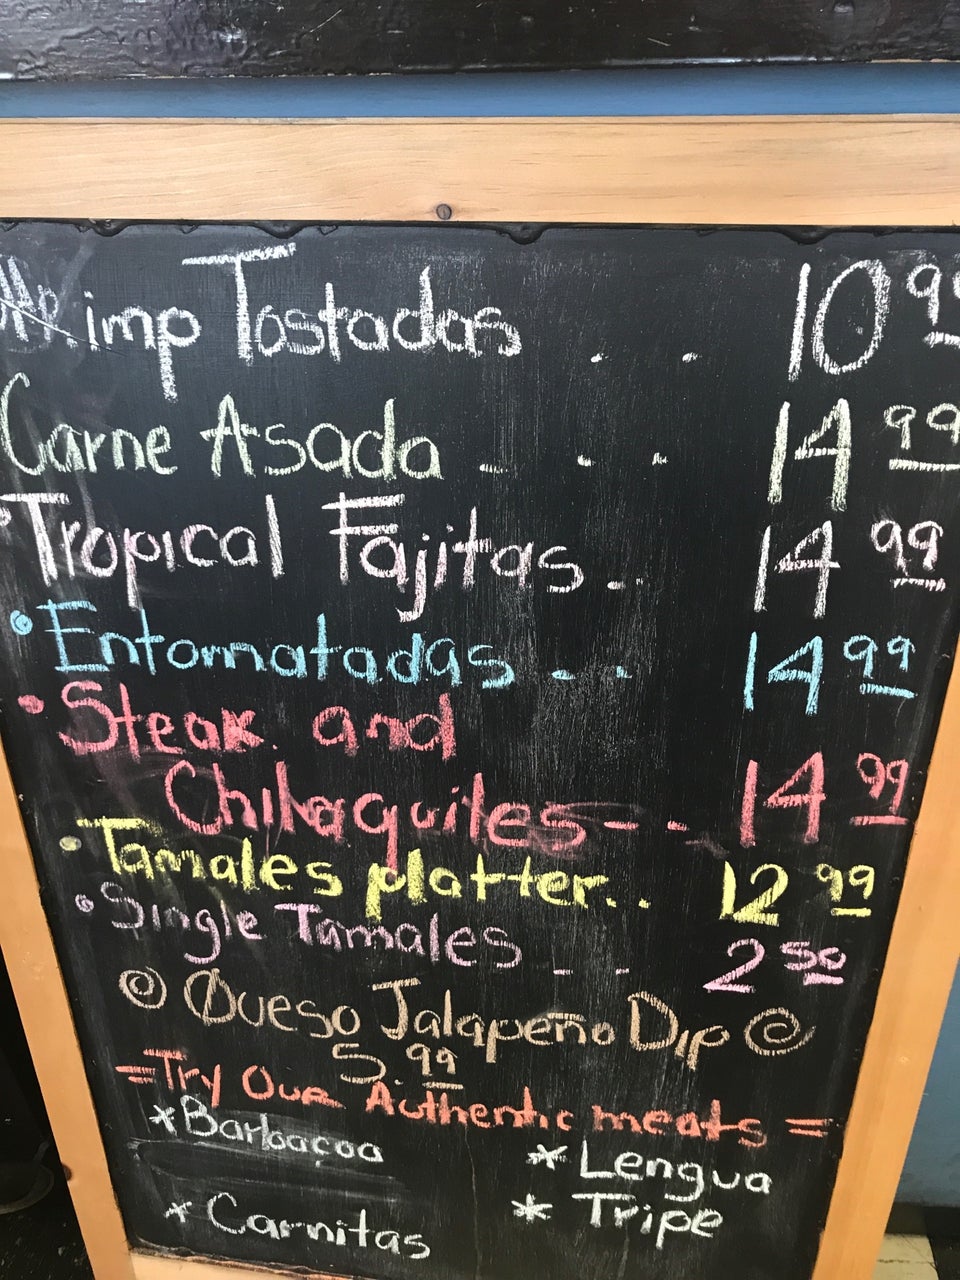 Shrimp Tostadas . . 10 99
Carne Asada - . . 14 99
Tropical Fajitas . . 14 99
• Entomatadas . . 14 99
• Steak and
Chilaquiles - - 14 99
• Tamales platter . . 12 99
• Single Tamales - - 2 50
Queso Jalapeño Dip
5.99
= Try Our Authentic meats =
* Barbacoa
* Lengua
* Carnitas
* Tripe